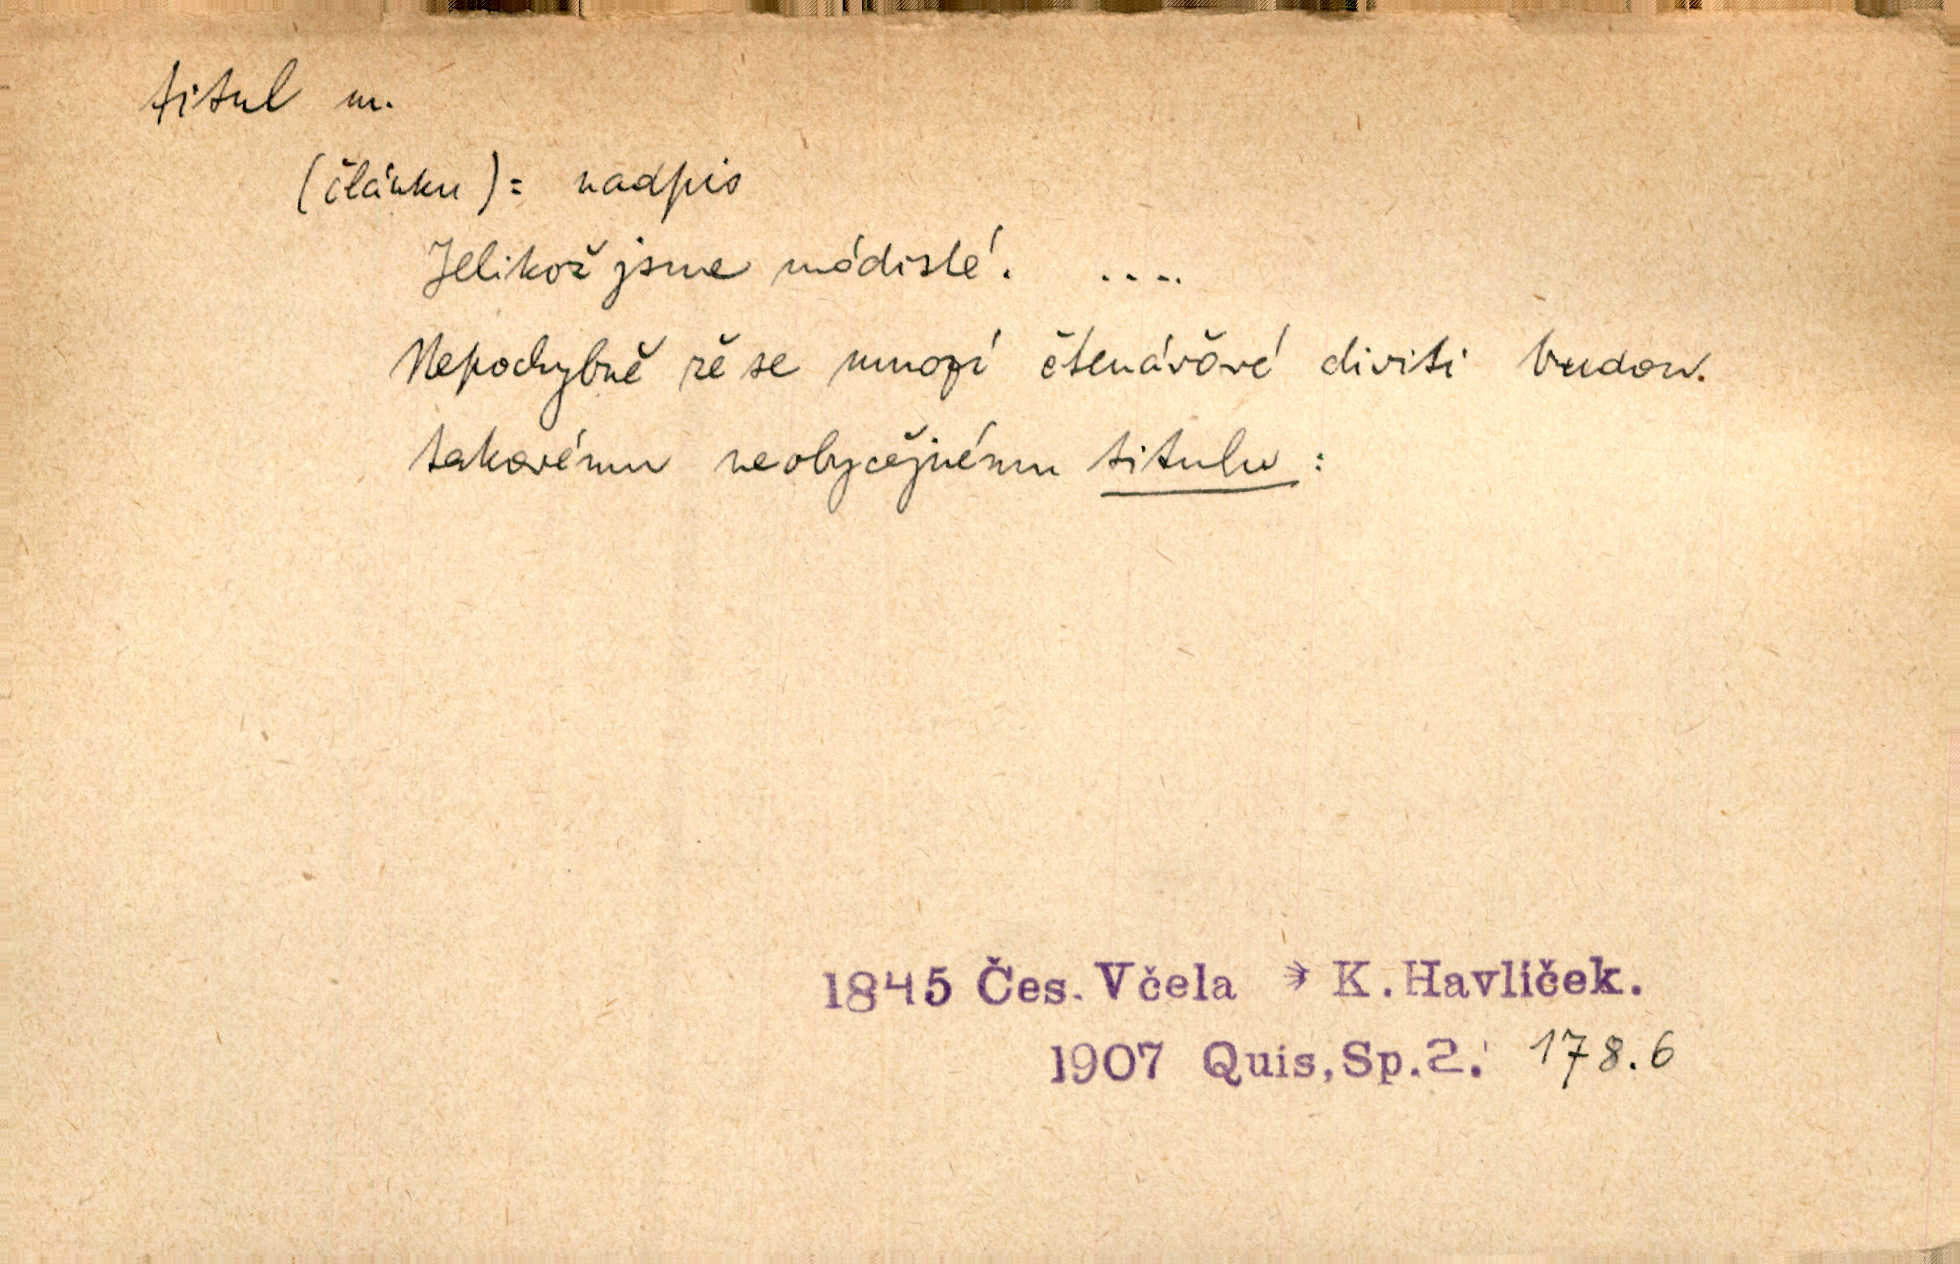 titul m.
(článku) = nadpis
Jelikož jsme módisté. ....
Nepochybně že se mnozí čtenářové diviti budou.
takovému neobyčejnému titulu :
1845 Čes. Včela * K. Havlíček.
1907 Quis, Sp. 2. 178.6